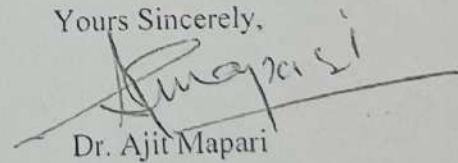 Yours Sincerely,
Amapari
Dr. Ajit Mapari